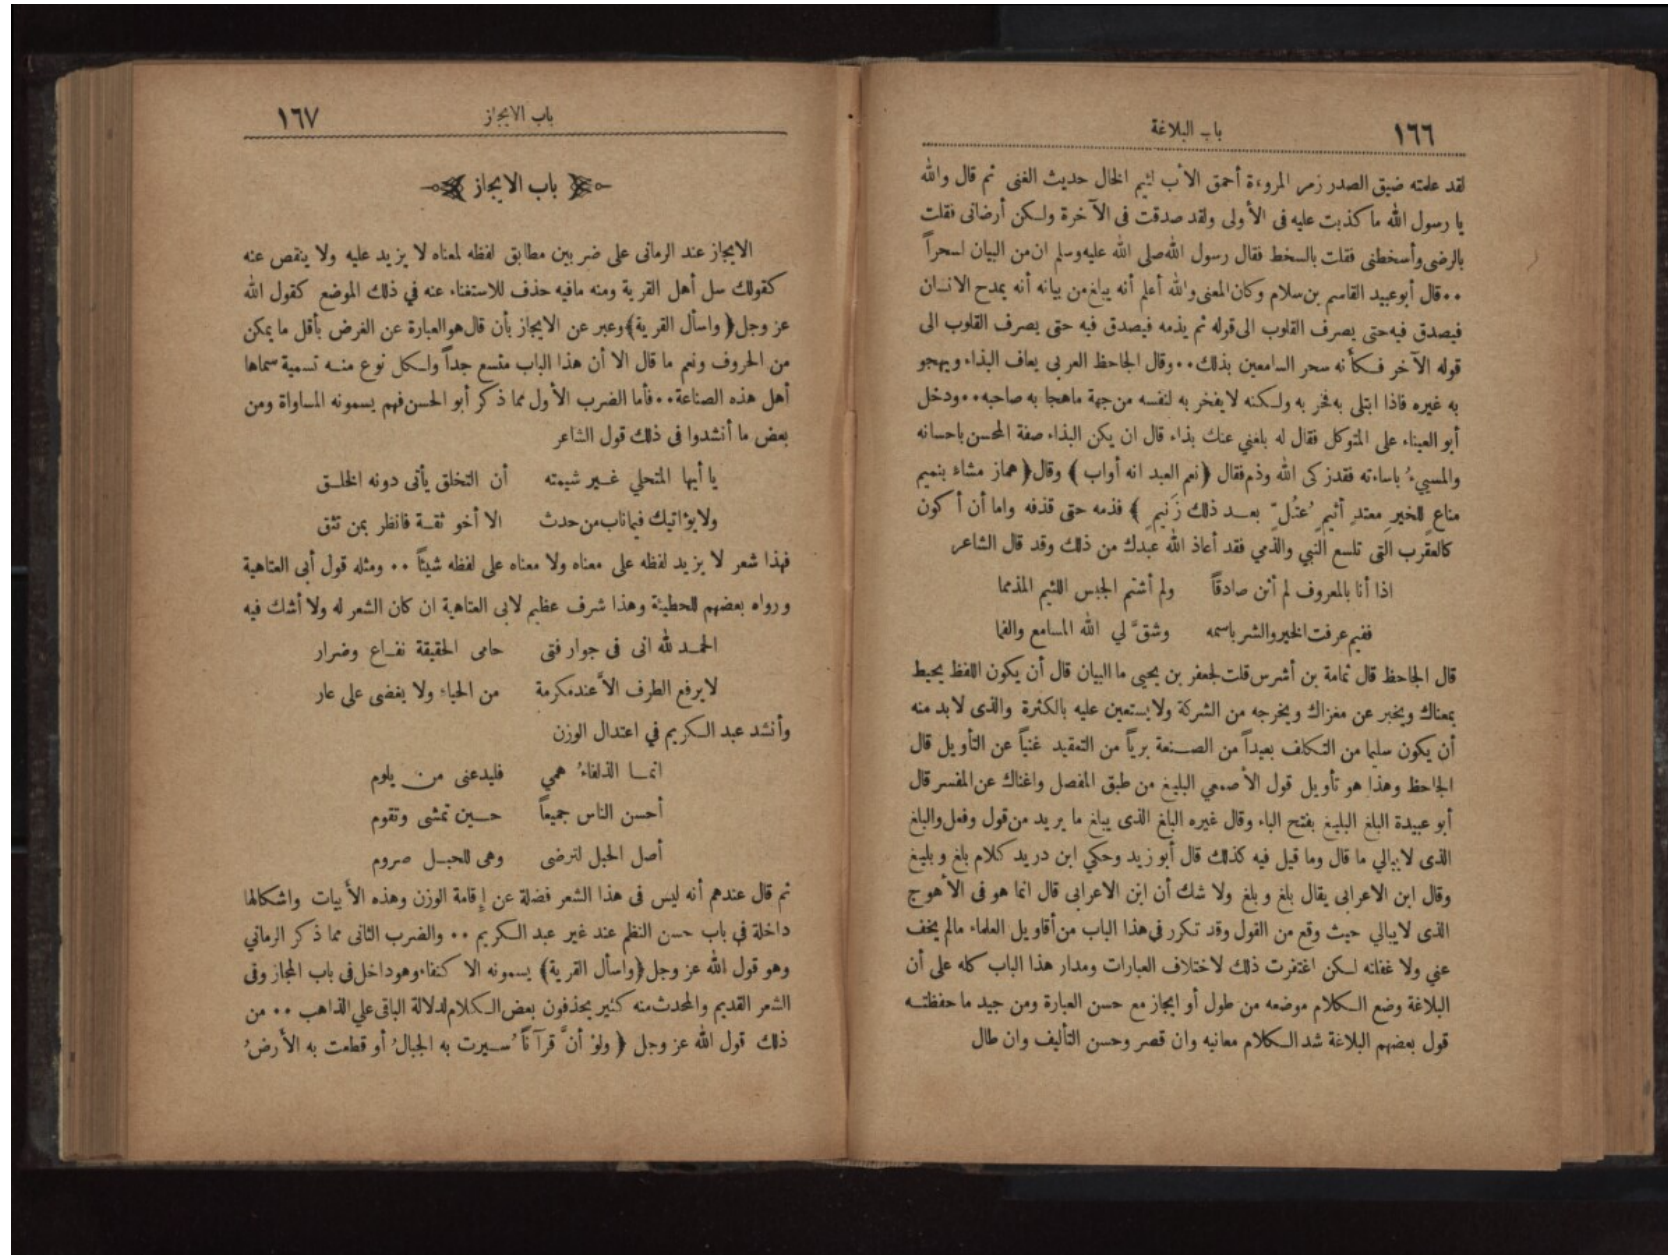 ١٦٦
باب البلاغة
لقد علمته ضيق الصدر زمر المروءة أحمق الأب لئيم الخال حديث الغنى ثم قال والله
يا رسول الله ما كذبت عليه فى الأولى ولقد صدقت فى الآخرة ولكن أرضانى فقلت
بالرضى وأسخطنى فقلت بالسخط فقال رسول الله صلى الله عليه وسلم ان من البيان لسحراً
٠٠ قال أبو عبيد القاسم بن سلام وكان المعنى والله أعلم أنه يبلغ من بيانه أنه يمدح الانسان
فيصدق فيه حتى يصرف القلوب الى قوله ثم يذمه فيصدق فيه حتى يصرف القلوب الى
قوله الآخر فكأنه سحر السامعين بذلك ٠٠ وقال الجاحظ العربى يعاف البذاء ويهجو
به غيره فاذا ابتلى به فخر به ولكنه لا يفخر به لنفسه من جهة ما هجا به صاحبه ٠٠ ودخل
أبو العيناء على المتوكل فقال له بلغني عنك بذاء قال ان يكن البذاء صفة المحسن باحسانه
والمسيءُ باساءته فقد زكى الله وذم فقال ( نعم العبد انه أواب ) وقال ( هماز مشاء بنميم
مناع للخير معتدٍ أثيمٍ عُتُلٍّ بعد ذلك زَنيمٍ ) فذمه حتى قذفه واما أن أكون
كالعقرب التى تلسع النبي والذمي فقد أعاذ الله عبدك من ذلك وقد قال الشاعر
اذا أنا بالمعروف لم أثن صادقاً ولم أشتم الجبس اللئيم المذمما
ففيم عرفت الخير والشر باسمه وشقَّ لي الله المسامع والفما
قال الجاحظ قال ثمامة بن أشرس قلت لجعفر بن يحيى ما البيان قال أن يكون اللفظ يحيط
بمعناك ويخبر عن مغزاك ويخرجه من الشركة ولا يستعين عليه بالكثرة والذى لا بد منه
أن يكون سليما من التكلف بعيداً من الصنعة برياً من التعقيد غنياً عن التأويل قال
الجاحظ وهذا هو تأويل قول الأصمعي البليغ من طبق المفصل واغناك عن المفسر قال
أبو عبيدة البلغ البليغ بفتح الباء وقال غيره البلغ الذى يبلغ ما يريد من قول وفعل والبلغ
الذى لا يبالي ما قال وما قيل فيه كذلك قال أبو زيد وحكي ابن دريد كلام بلغ وبليغ
وقال ابن الاعرابى يقال بلغ وبلغ ولا شك أن ابن الاعرابى قال انما هو فى الأهوج
الذى لا يبالي حيث وقع من القول وقد تكرر فى هذا الباب من أقاويل العلماء مالم يخف
عني ولا غفلته لكن اغتفرت ذلك لاختلاف العبارات ومدار هذا الباب كله على أن
البلاغة وضع الكلام موضعه من طول أو ايجاز مع حسن العبارة ومن جيد ما حفظته
قول بعضهم البلاغة شد الكلام معانيه وان قصر وحسن التأليف وان طال
باب الايجاز
١٦٧
باب الايجاز
الايجاز عند الرمانى على ضربين مطابق لفظه لمعناه لا يزيد عليه ولا ينقص عنه
كقولك سل أهل القرية ومنه مافيه حذف للاستغناء عنه في ذلك الموضع كقول الله
عز وجل ( واسأل القرية ) وعبر عن الايجاز بأن قال هو العبارة عن الغرض بأقل ما يمكن
من الحروف ونعم ما قال الا أن هذا الباب متسع جداً ولكل نوع منه تسمية سماها
أهل هذه الصناعة ٠٠ فأما الضرب الأول مما ذكر أبو الحسن فهم يسمونه المساواة ومن
بعض ما أنشدوا فى ذلك قول الشاعر
يا أيها المتحلي غير شيمته أن التخلق يأتى دونه الخلق
ولا يؤاتيك فيما ناب من حدث الا أخو ثقة فانظر بمن تثق
فهذا شعر لا يزيد لفظه على معناه ولا معناه على لفظه شيئاً ٠٠ ومثله قول أبى العتاهية
ورواه بعضهم للحطيئة وهذا شرف عظيم لابى العتاهية ان كان الشعر له ولا أشك فيه
الحمد لله انى فى جوار فتى حامى الحقيقة نفاع وضرار
لا يرفع الطرف الاَّ عند مكرمة من الحياء ولا يغضى على عار
وأنشد عبد الكريم في اعتدال الوزن
انما الذلفاءُ همي فليدعنى من يلوم
أحسن الناس جميعاً حين تمشى وتقوم
أصل الحبل لترضى وهى للحبل صروم
ثم قال عندهم أنه ليس فى هذا الشعر فضلة عن إقامة الوزن وهذه الأبيات واشكالها
داخلة في باب حسن النظم عند غير عبد الكريم ٠٠ والضرب الثانى مما ذكر الرماني
وهو قول الله عز وجل ( واسأل القرية ) يسمونه الاكتفاء وهو داخل فى باب المجاز وفى
الشعر القديم والمحدث منه كثير يحذفون بعض الكلام لدلالة الباقى علي الذاهب ٠٠ من
ذلك قول الله عز وجل ( ولوْ أنَّ قرآناً سُيرت به الجبالُ أو قطعت به الأرضُ